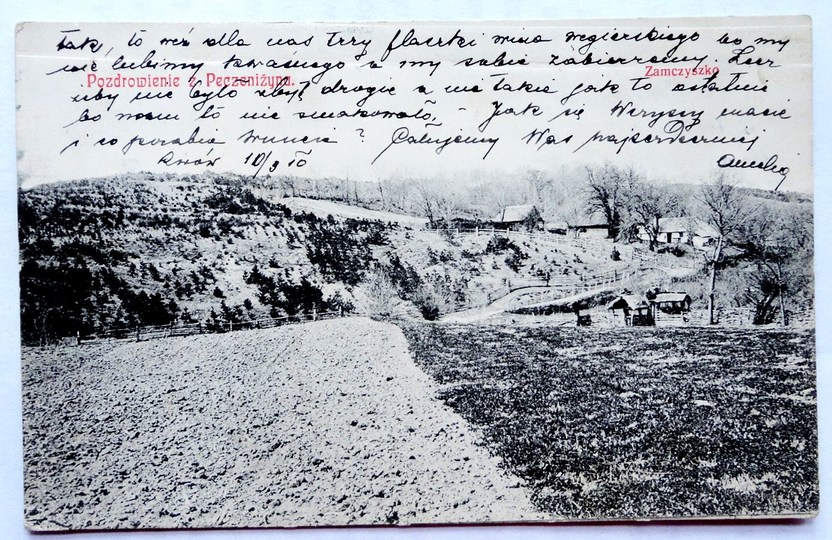 tak, to weź dla nas trzy flaszki wina węgierskiego bo my
nie lubimy kwaśnego a my sobie zabierzemy. Lecz
Pozdrowienie z Peczeniżyna.
Zamczyszko
żeby nie było zbyt drogie a nie takie jak to ostatnie
bo nam to nie smakowało, - Jak się Wszyscy macie
i co porabia ? Całujemy Was najserdeczniej
Lwów 10/9 10